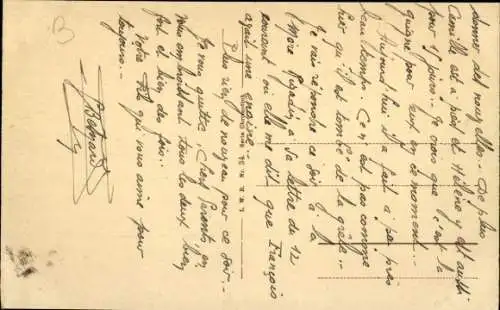 donner des nouvelles. De plus
Camille est à Paris et Hélène y est aussi
pour 15 jours. Je crois que c'est la
guigne pour eux en ce moment.
Aujourd'hui il a fait à peu près
beau temps. Ce n'est pas comme
hier qu'il est tombé de la grêle.
Je vais répondre ce soir à la
Mère Rigadin à sa lettre de 12
courant où elle me dit que François
avait une
Plus rien de nouveau pour ce soir.
Je vous quitte, Chers Parents en
vous embrassant tous les deux bien
fort et bien des fois.
Votre fils qui vous aime pour
toujours.